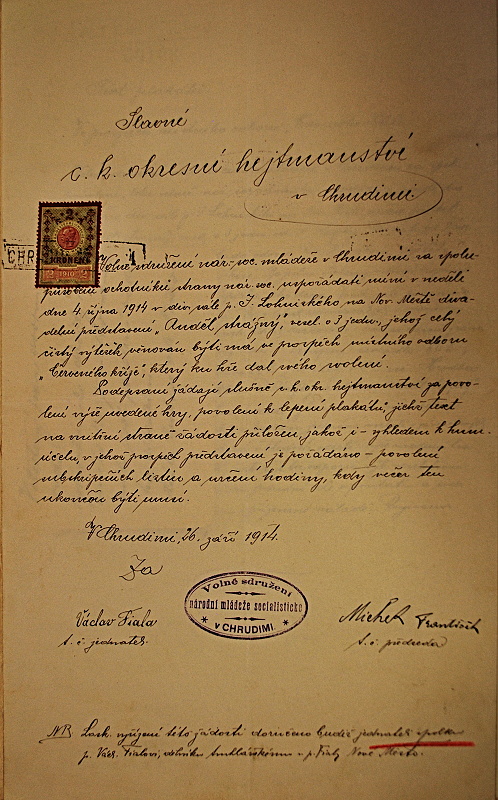 Slavné
c. k. okresní hejtmanství
v Chrudimi
2
KRONEN
2 1910 2
CHR
Volné sdružení nár. soc. mládeže v Chrudimi za spolu-
působení ochotníků strany nár. soc. uspořádati míní v neděli
dne 4. října 1914 v div. sále p. J. na Nov. Městě diva-
delní představení „Anděl strážný", vesel. o 3 jedn., jehož celý
čistý výtěžek věnován býti má ve prospěch místního odboru
„Červeného kříže", který ku hře dal svého svolení.
Podepsaní žádají slušně c. k. okr. hejtmanství za povo-
lení výše uvedené hry, povolení k lepení plakátů, jichž text
na vnitřní straně žádosti přiložen, jakož i – vzhledem k hum.
účelu, v jehož prospěch představení je pořádáno – povolení
subskripčních listin a určení hodiny, kdy večer ten
ukončen býti musí.
V Chrudimi, 26. září 1914.
Za
Volné sdružení
národní mládeže socialistické
v CHRUDIMI.
Václav Fiala
t. č. jednatel.
Michek František
t. č. předseda
NB Lask. vyřízení této žádosti doručeno budiž jednateli spolku
p. Václ. Fialovi, u p. Fialy Nové Město.